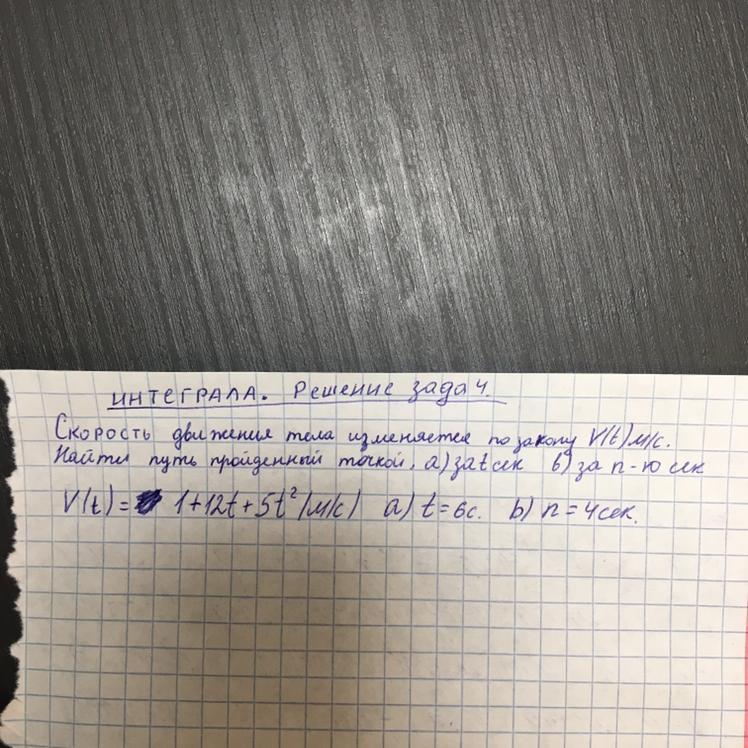 ИНТЕГРАЛА. Решение задач.
Скорость движения тела изменяется по закону V(t) м/с.
Найти путь пройденный точкой, а) за t сек в) за n-ю сек
V(t) = 1+12t+5t² (м/с) а) t=6с. b) n=4сек.